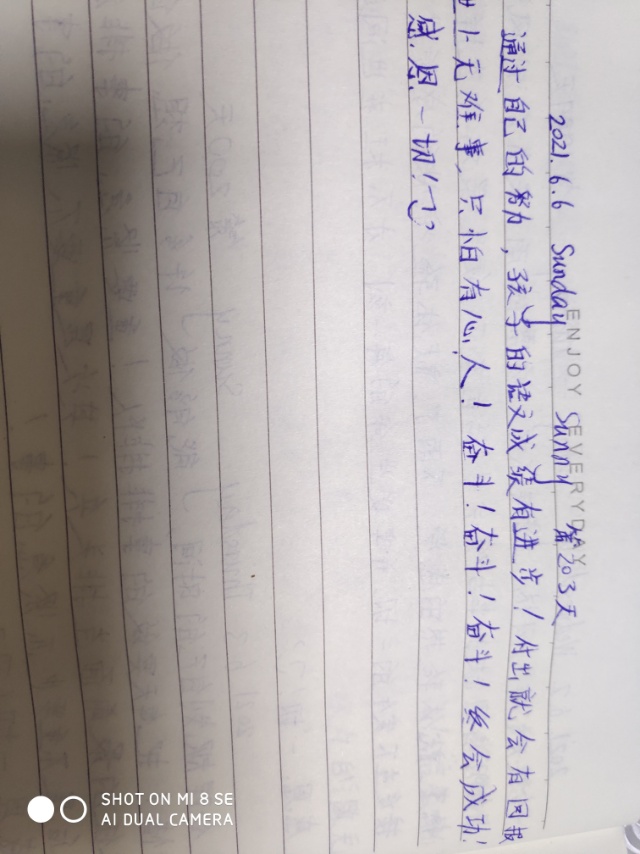 ENJOY EVERYDAY
2021.6.6 Sunday Sunny 第203天
通过自己的努力,孩子的语文成绩有进步!付出就会有回报
世上无难事,只怕有心人!奋斗!奋斗!奋斗!终会成功!
感恩一切!
SHOT ON MI 8 SE
AI DUAL CAMERA